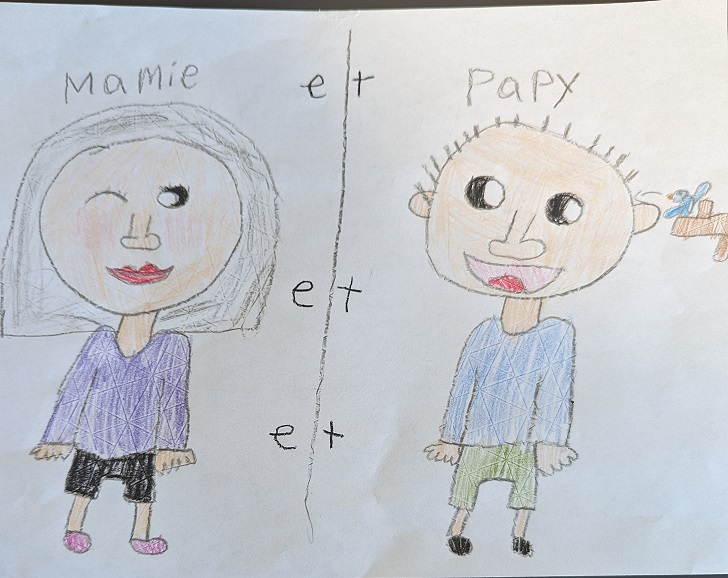 Mamie et Papy
et
et